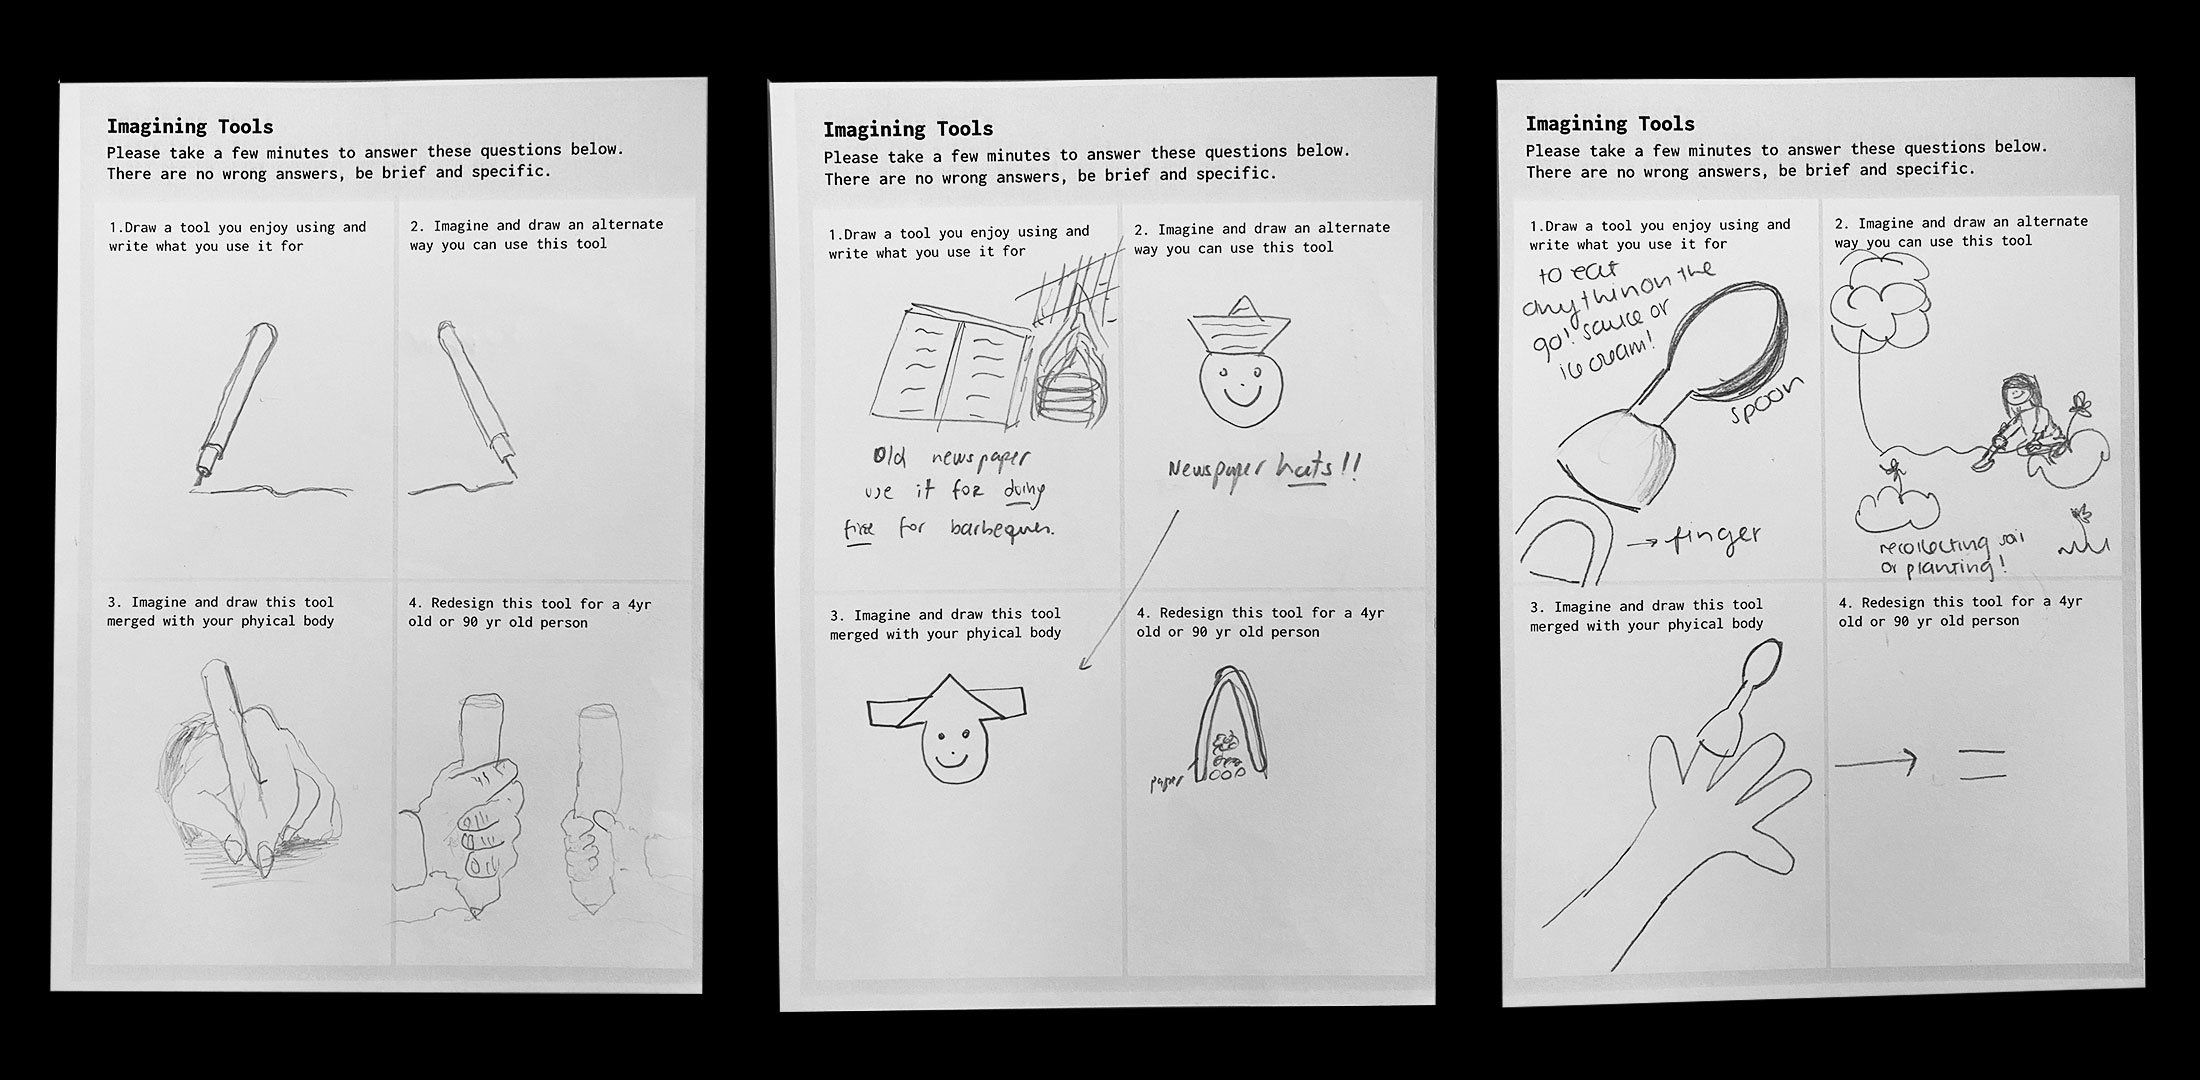 Imagining Tools
Please take a few minutes to answer these questions below.
There are no wrong answers, be brief and specific.
1.Draw a tool you enjoy using and
write what you use it for
2. Imagine and draw an alternate
way you can use this tool
3. Imagine and draw this tool
merged with your phyical body
4. Redesign this tool for a 4yr
old or 90 yr old person
Imagining Tools
Please take a few minutes to answer these questions below.
There are no wrong answers, be brief and specific.
1.Draw a tool you enjoy using and
write what you use it for
Old newspaper
use it for doing
fire for barbeques.
2. Imagine and draw an alternate
way you can use this tool
Newspaper hats!!
3. Imagine and draw this tool
merged with your phyical body
4. Redesign this tool for a 4yr
old or 90 yr old person
paper
Imagining Tools
Please take a few minutes to answer these questions below.
There are no wrong answers, be brief and specific.
1.Draw a tool you enjoy using and
write what you use it for
to eat
anythin on the
go! sauce or
ice cream!
spoon
→ finger
2. Imagine and draw an alternate
way you can use this tool
recollecting soi
or planting!
3. Imagine and draw this tool
merged with your phyical body
4. Redesign this tool for a 4yr
old or 90 yr old person
→ =